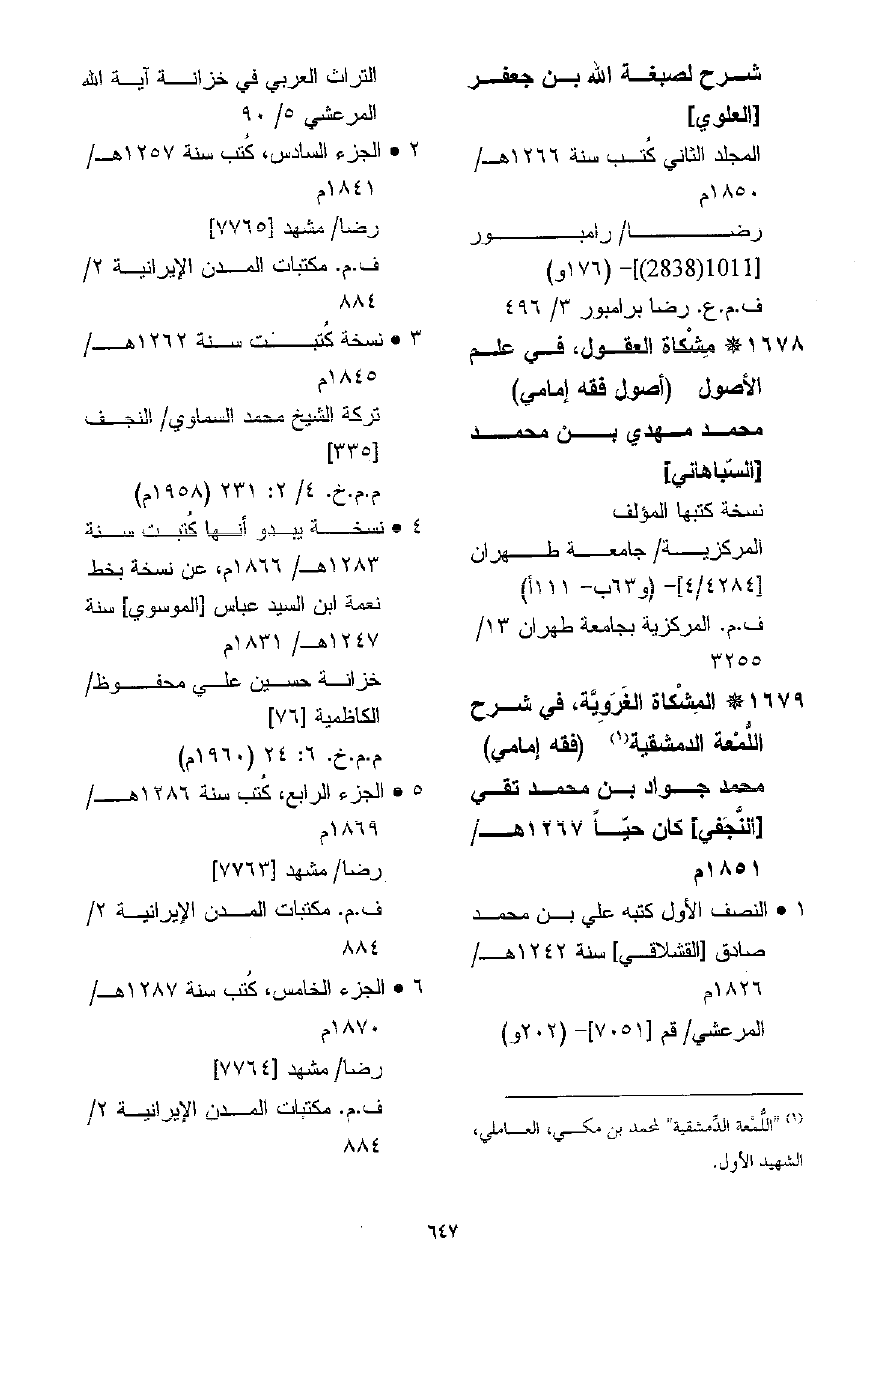 شرح لصبغة الله بن جعفر
[العلوي]
المجلد الثاني كُتب سنة ١٢٦٦هـ/
١٨٥٠م
رضا/ رامبور
[1011(2838)]- (١٧٦و)
ف.م.ع. رضا برامبور ٣/ ٤٩٦
١٦٧٨ * مِشْكاة العقول، في علم
الأصول (أصول فقه إمامي)
محمد مهدي بن محمد
[السّباهاني]
نسخة كتبها المؤلف
المركزية/ جامعة طهران
[٤/٤٢٨٤]- (و٦٣ب- ١١١أ)
ف.م. المركزية بجامعة طهران ١٣/
٣٢٥٥
١٦٧٩ * المِشْكاة الغَرَوِيَّة، في شرح
اللُّمْعة الدمشقية(١) (فقه إمامي)
محمد جواد بن محمد تقي
[النَّجَفي] كان حيّاً ١٢٦٧هـ/
١٨٥١م
١ • النصف الأول كتبه علي بن محمد
صادق [القشلاقي] سنة ١٢٤٢هـ/
١٨٢٦م
المرعشي/ قم [٧٠٥١]- (٢٠٢و)
(١) "اللُّمْعة الدِّمشقية" لمحمد بن مكي، العاملي،
الشهيد الأول.
التراث العربي في خزانة آية الله
المرعشي ٥/ ٩٠
٢ • الجزء السادس، كُتب سنة ١٢٥٧هـ/
١٨٤١م
رضا/ مشهد [٧٧٦٥]
ف.م. مكتبات المدن الإيرانية ٢/
٨٨٤
٣ • نسخة كُتبت سنة ١٢٦٢هـ/
١٨٤٥م
تركة الشيخ محمد السماوي/ النجف
[٣٣٥]
م.م.خ. ٤/ ٢: ٢٣١ (١٩٥٨م)
٤ • نسخة يبدو أنها كُتبت سنة
١٢٨٣هـ/ ١٨٦٦م، عن نسخة بخط
نعمة ابن السيد عباس [الموسوي] سنة
١٢٤٧هـ/ ١٨٣١م
خزانة حسين علي محفوظ/
الكاظمية [٧٦]
م.م.خ. ٦: ٢٤ (١٩٦٠م)
٥ • الجزء الرابع، كُتب سنة ١٢٨٦هـ/
١٨٦٩م
رضا/ مشهد [٧٧٦٣]
ف.م. مكتبات المدن الإيرانية ٢/
٨٨٤
٦ • الجزء الخامس، كُتب سنة ١٢٨٧هـ/
١٨٧٠م
رضا/ مشهد [٧٧٦٤]
ف.م. مكتبات المدن الإيرانية ٢/
٨٨٤
٦٤٧